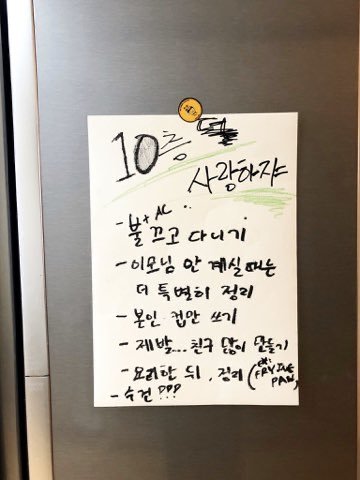 10층 더
사랑하자
- 불 + AC 끄고 다니기
- 이모님 안 계실 때는
더 특별히 정리
- 본인 컵만 쓰기
- 제발... 친구 많이 만들기
- 요리한 뒤, 정리 (ex: FRYING PAN)
- 수건 ???